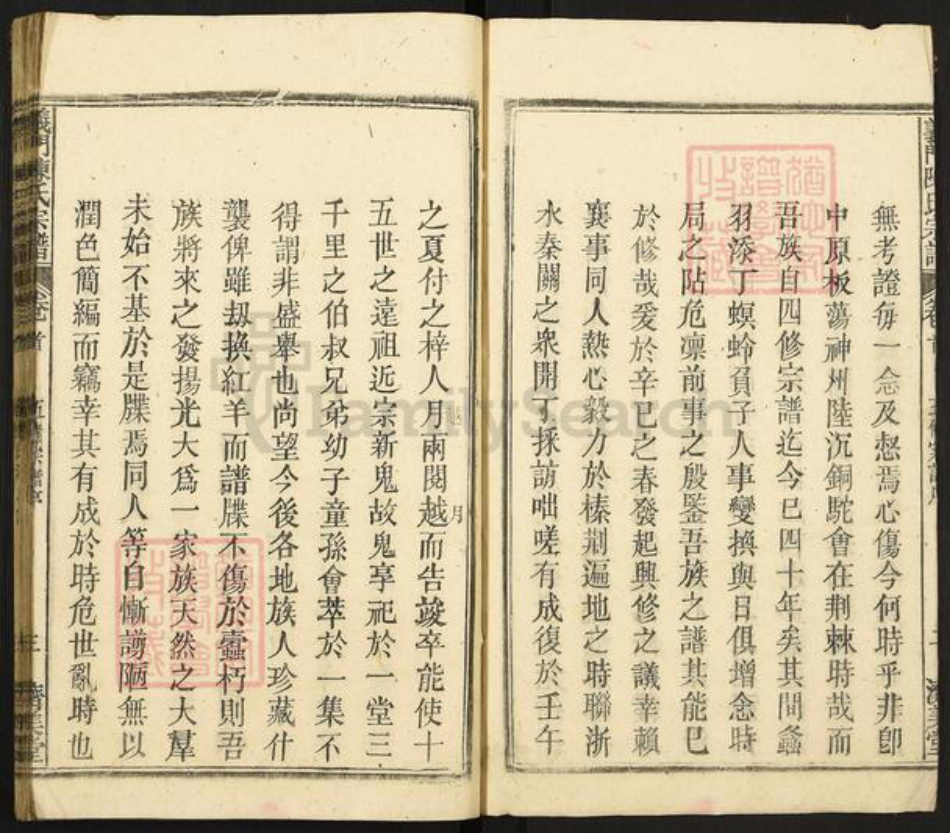 無考證每一念及愁焉心傷今何時乎非卽
中原板蕩神州陸沉銅駝會在荆棘時哉而
吾族自四修宗譜迄今已四十年矣其間螽
羽添丁螟蛉負子人事變換與日俱增念時
局之阽危凛前事之殷鑒吾族之譜其能已
於修哉爰於辛巳之春發起興修之議幸賴
襄事同人熱心毅力於榛荆遍地之時聯浙
水秦關之衆開丁採訪咄嗟有成復於壬午
之夏付之梓人月兩閱越而告竣卒能使十
月
五世之遠祖近宗新鬼故鬼享祀於一堂三
千里之伯叔兄弟幼子童孫會萃於一集不
得謂非盛舉也尚望今後各地族人珍藏什
襲俾雖刼換紅羊而譜牒不傷於蠹朽則吾
族將來之發揚光大爲一家族天然之大羣
未始不基於是牒焉同人等自慚譾陋無以
潤色簡編而竊幸其有成於時危世亂時也
義門陳氏宗譜
卷首
三
濟美堂
FamilySearch